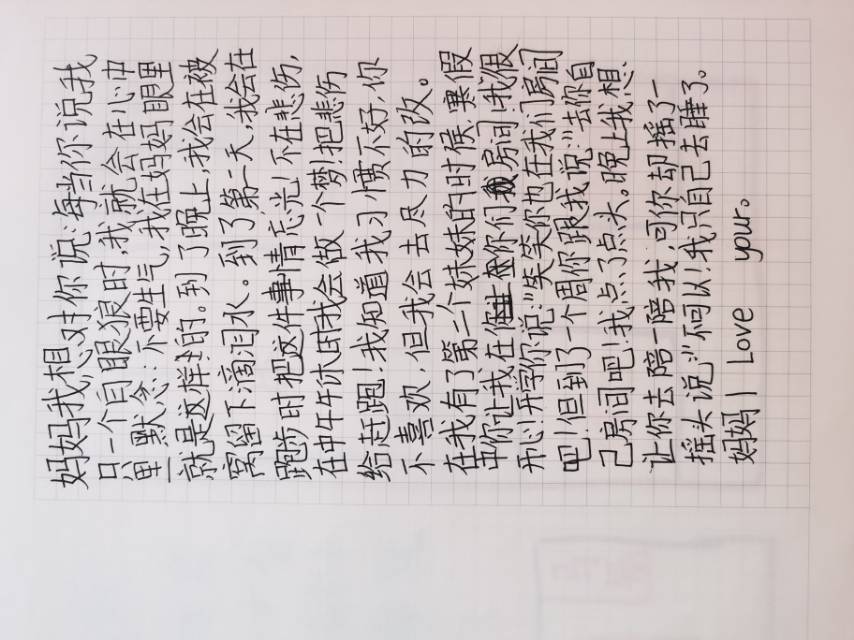 妈妈我想对你说:每当你说我
只一个白眼狼时,我就会在心中
里默念:不要生气,我在妈妈眼里
就是这样的。到了晚上,我会在被
窝留下滴泪水。到了第二天,我会在
跑步时把这件事情忘光!不在悲伤,
在中午午休时我会做一个梦!把悲伤
给赶跑!我知道我习惯不好,你
不喜欢,但我会去尽力的改。
在我有了第二个妹妹的时候,寒假
中你让我在你们房间,我很
开心!开学你说:"笑笑你也在我们房间
吧!但到了一个周你跟我说:"去你自
己房间吧!我点了点头。晚上我想
让你去陪一陪我,可你却摇了一
摇头说:"不可以!我只自己去睡了。
妈妈 I Love your。